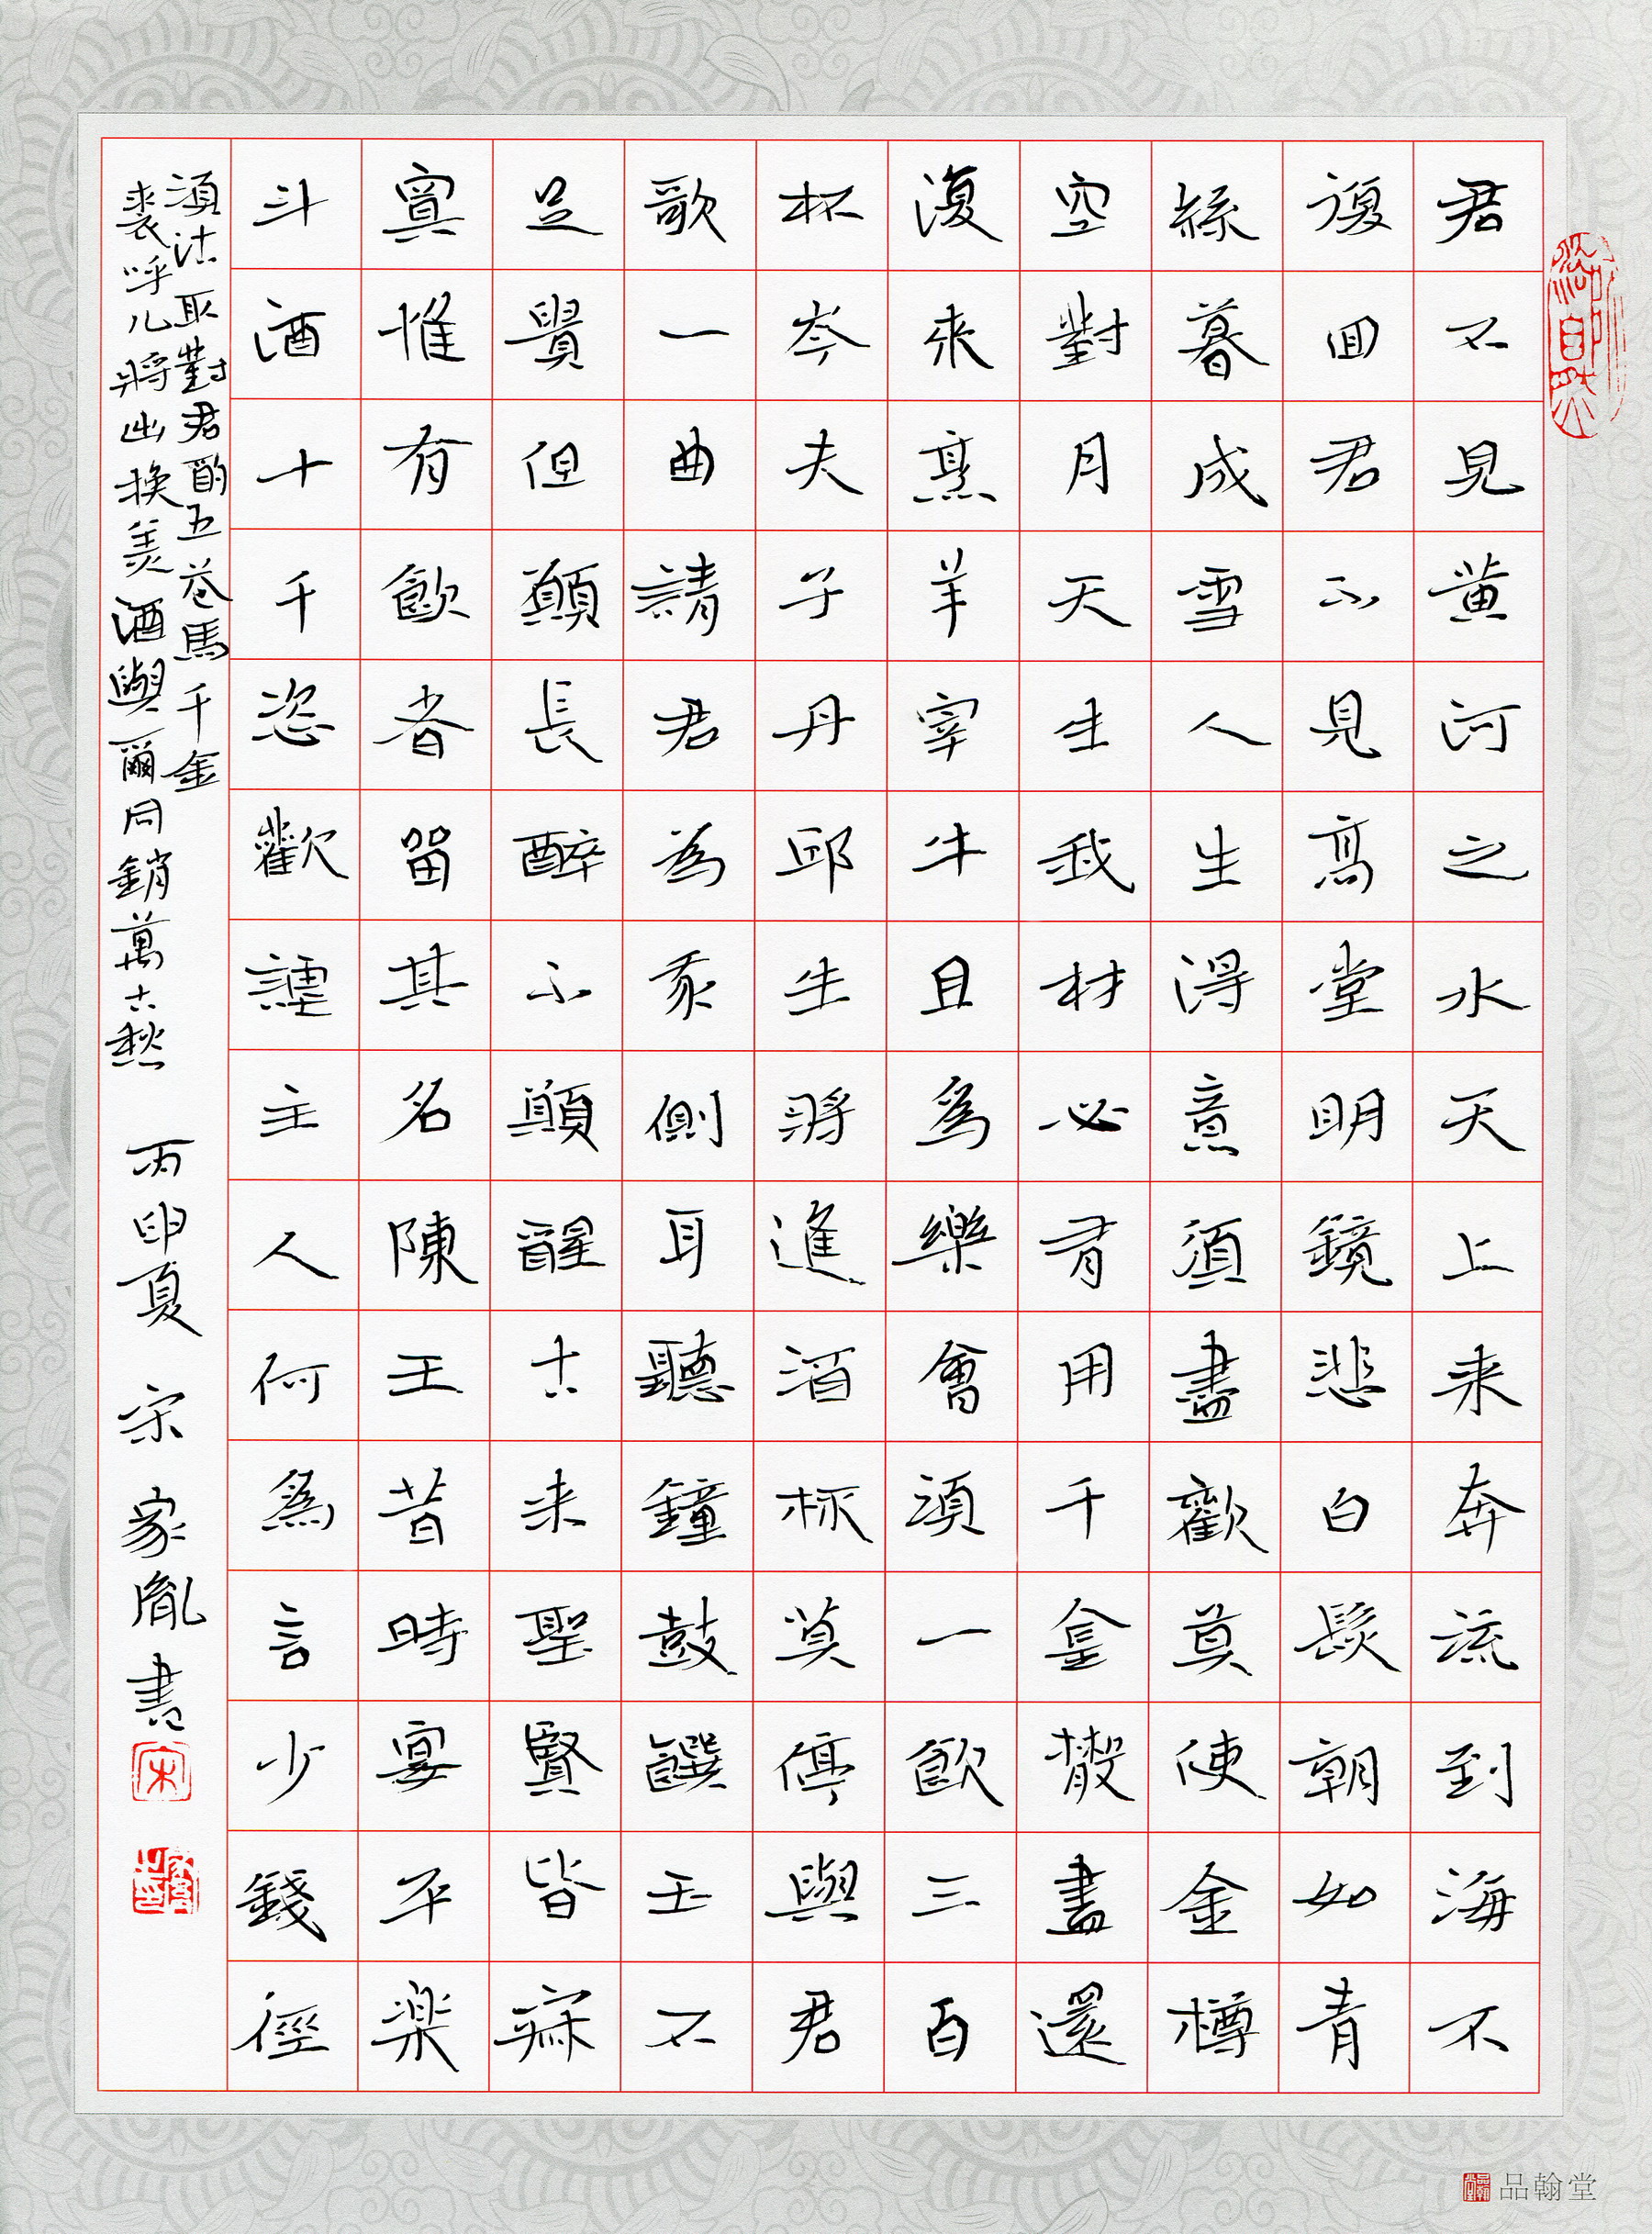 君不見黃河之水天上来奔流到海不
復回君不見高堂明鏡悲白髮朝如青
絲暮成雪人生得意須盡歡莫使金樽
空對月天生我材必有用千金散盡還
復来烹羊宰牛且為樂會須一飲三百
杯岑夫子丹邱生將進酒杯莫停與君
歌一曲請君為我側耳聽鐘鼓饌玉不
足貴但願長醉不願醒古来聖賢皆寂
寞惟有飲者留其名陳王昔時宴平樂
斗酒十千恣歡謔主人何為言少錢徑
須沽取對君酌五花馬千金
裘呼儿將出換美酒與爾同銷萬古愁 丙申夏 宋家胤書
宋
品翰堂